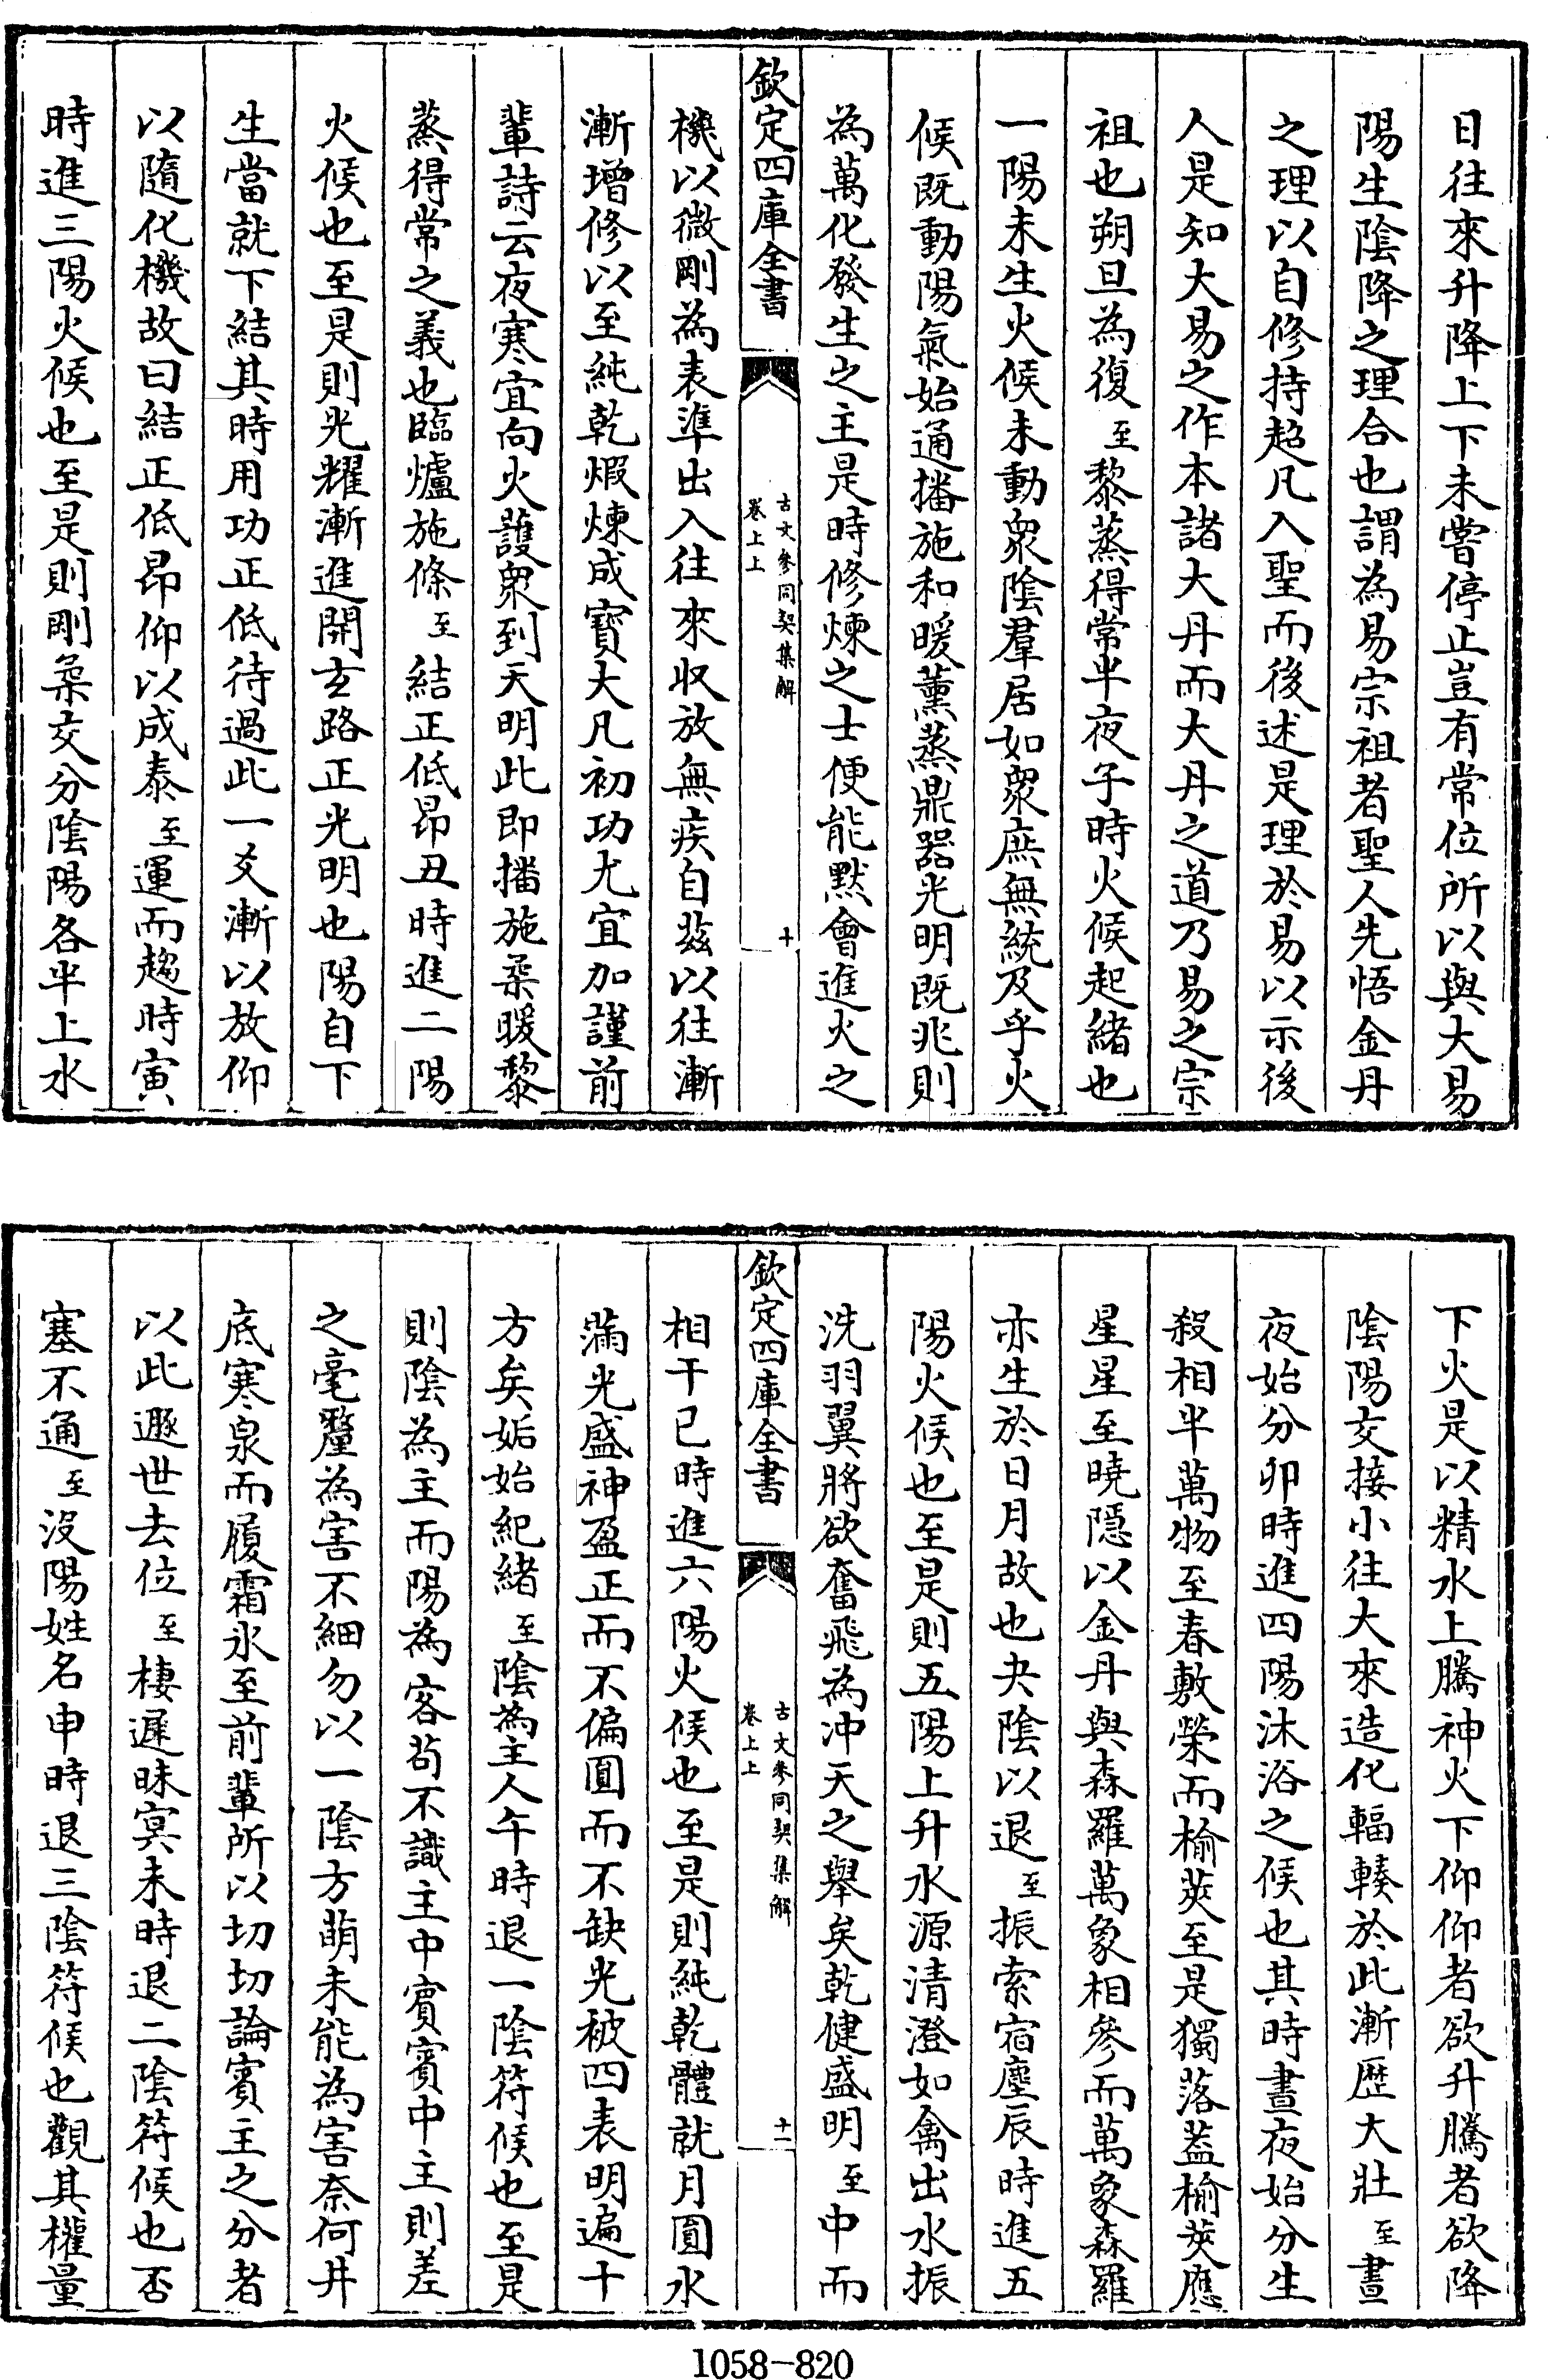 日往來升降上下未嘗停止豈有常位所以與大易
陽生陰降之理合也謂為易宗祖者聖人先悟金丹
之理以自修持超凡入聖而後述是理於易以示後
人是知大易之作本諸大丹而大丹之道乃易之宗
祖也朔旦為復至黎蒸得常半夜子時火候起緒也
一陽未生火候未動衆陰羣居如衆庶無統及乎火
候既動陽氣始通播施和暖薰蒸鼎器光明既兆則
為萬化發生之主是時修煉之士便能默會進火之
欽定四庫全書
古文參同契集解
卷上上
十
機以微剛為表準出入往來収放無疾自茲以往漸
漸增修以至純乾煆煉成寶大凡初功尤宜加謹前
輩詩云夜寒宜向火䕶衆到天明此即播施柔暖黎
蒸得常之義也臨爐施條至結正低昂丑時進二陽
火候也至是則光耀漸進開玄路正光明也陽自下
生當就下結其時用功正低待過此一爻漸以放仰
以隨化機故曰結正低昂仰以成泰至運而趨時寅
時進三陽火候也至是則剛柔交分陰陽各半上水
下火是以精水上騰神火下仰仰者欲升騰者欲降
陰陽交接小往大來造化輻輳於此漸歴大壯至晝
夜始分卯時進四陽沐浴之候也其時晝夜始分生
殺相半萬物至春敷榮而榆莢至是獨落葢榆莢應
星星至曉隱以金丹與森羅萬象相參而萬象森羅
亦生於日月故也夬陰以退至振索宿塵辰時進五
陽火候也至是則五陽上升水源清澄如禽出水振
洗羽翼將欲奮飛為冲天之舉矣乾健盛明至中而
欽定四庫全書
古文參同契集解
卷上上
十一
相干已時進六陽火候也至是則純乾體就月圓水
滿光盛神盈正而不偏圓而不缺光被四表明遍十
方矣姤始紀緒至陰為主人午時退一陰符候也至是
則陰為主而陽為客苟不識主中賓賓中主則差
之毫釐為害不細勿以一陰方萌未能為害奈何井
底寒泉而履霜氷至前輩所以切切論賓主之分者
以此遯世去位至棲遲昧冥未時退二陰符候也否
塞不通至沒陽姓名申時退三陰符候也觀其權量
1058-820